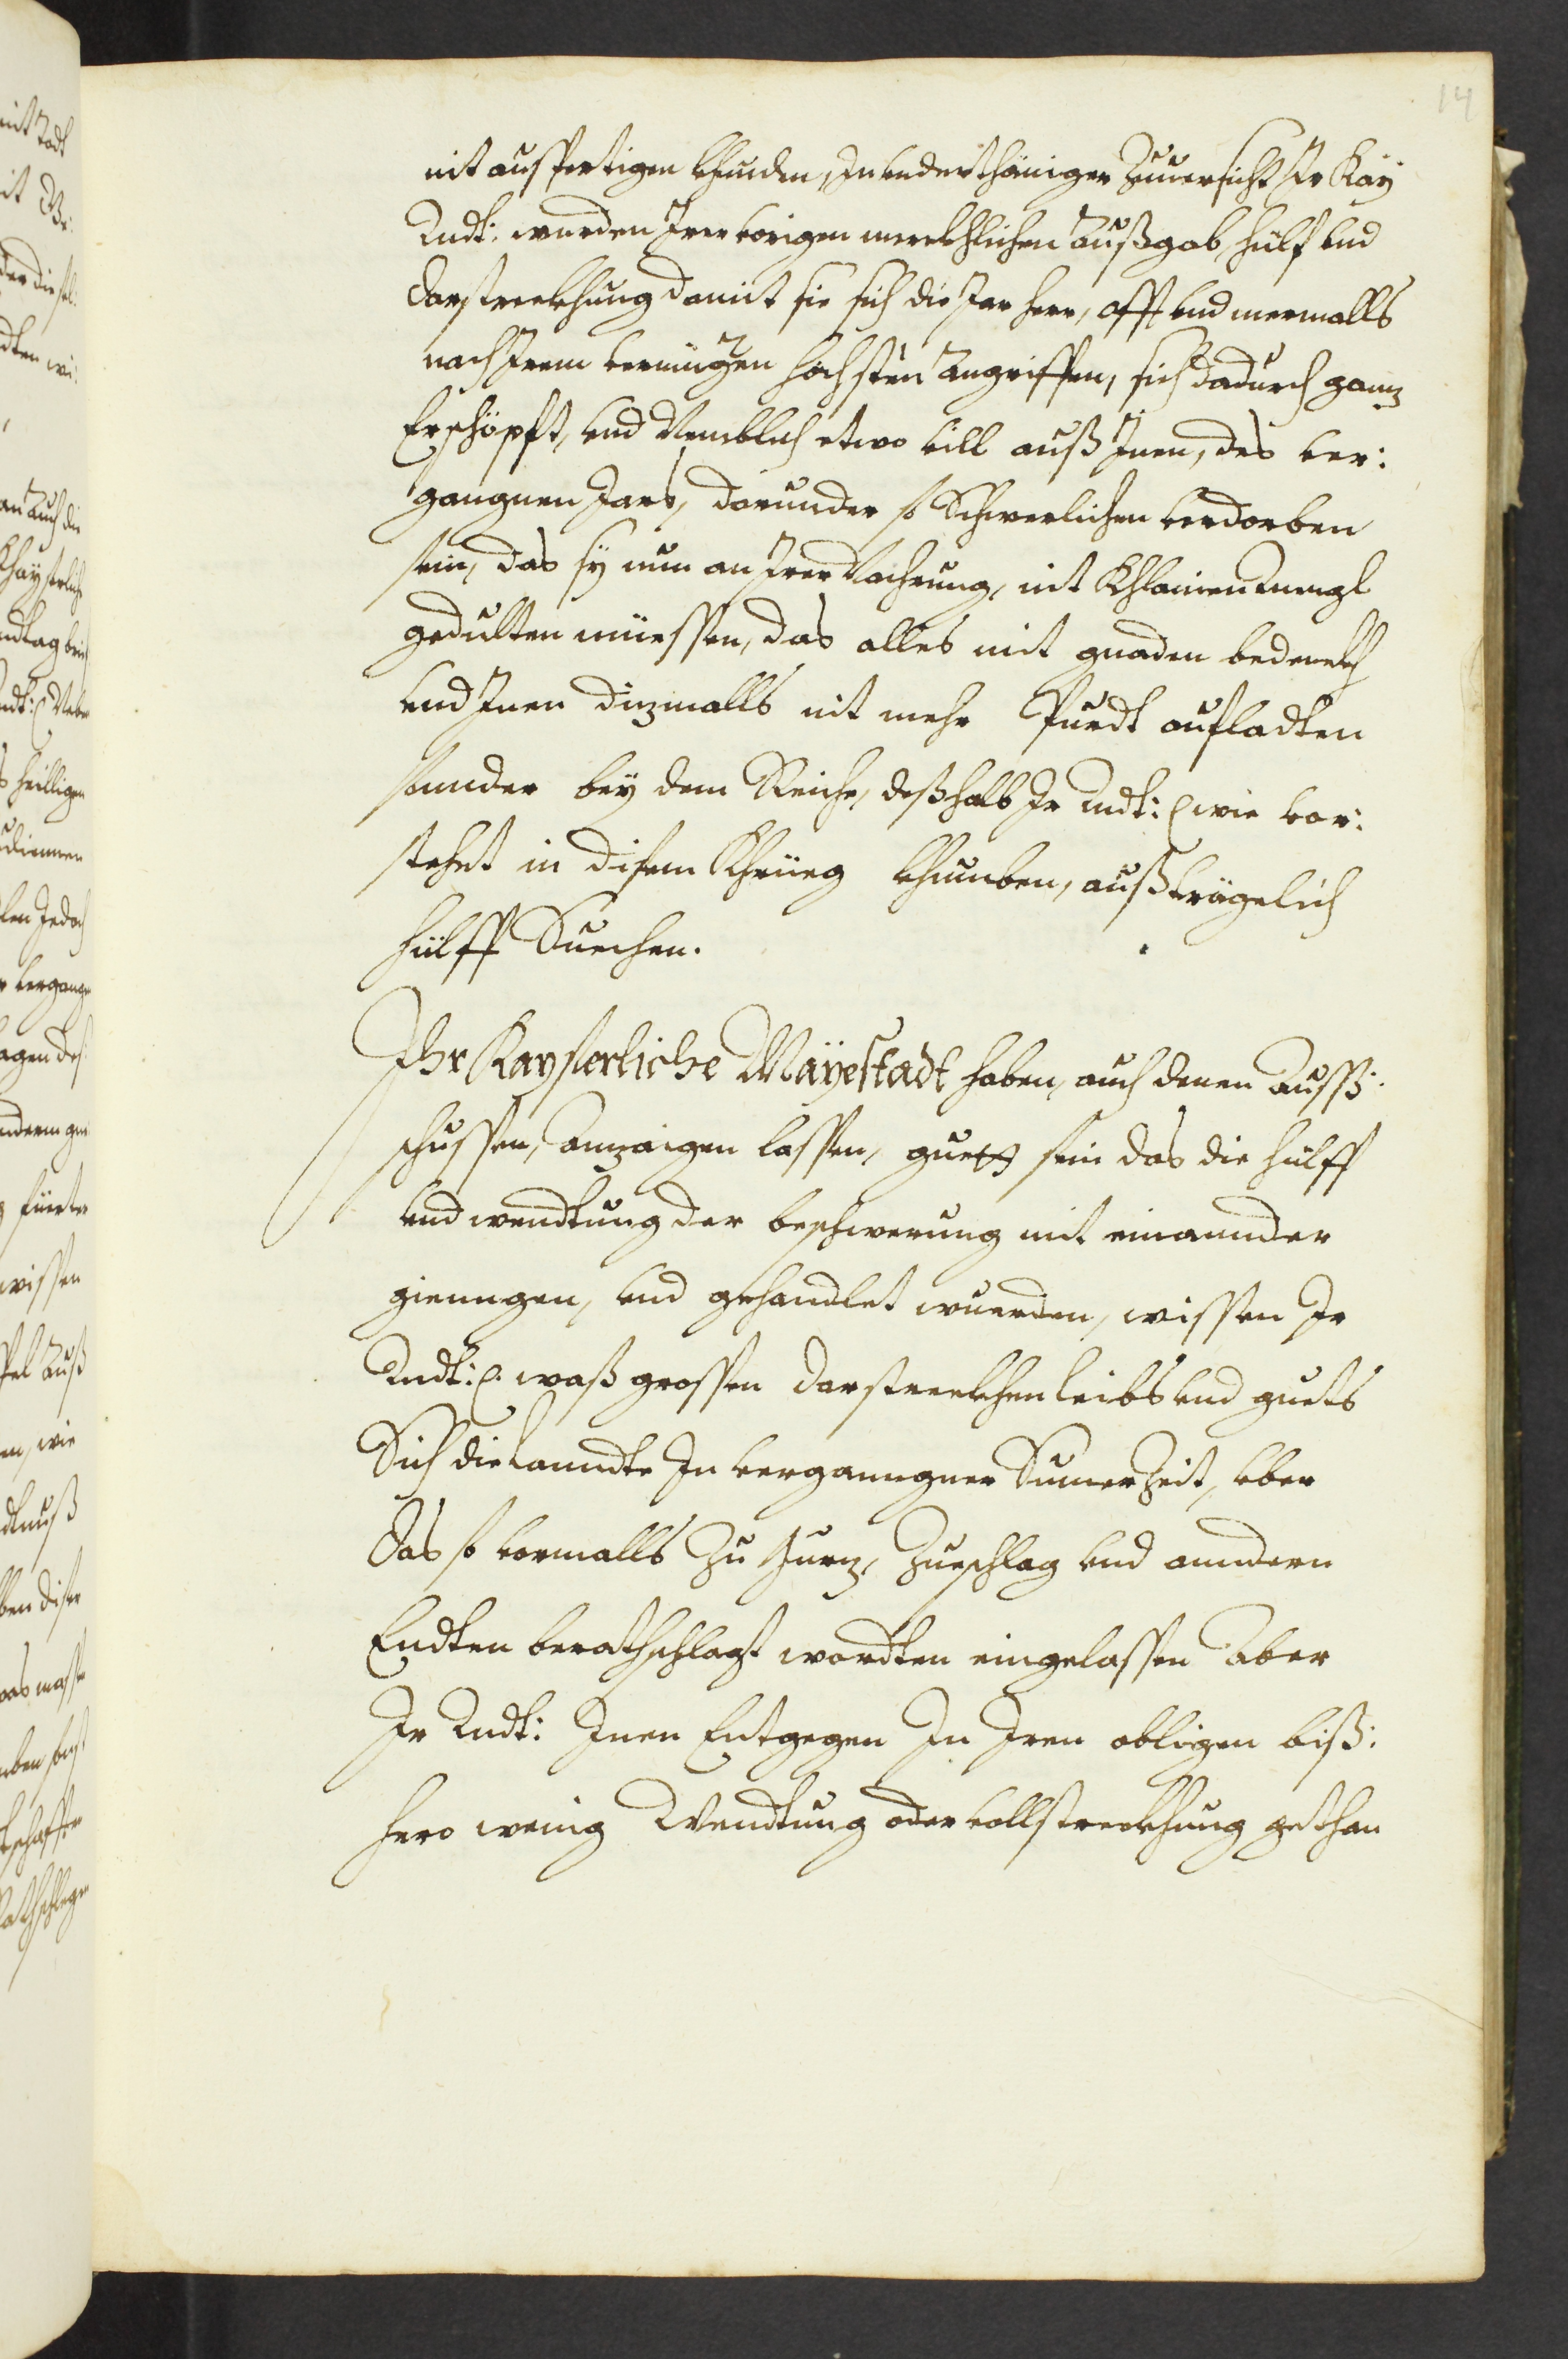 14
nit aussfertigen khinden, In underthäniger Zuuersicht Ir Kaÿ
Mdt: werden Irer vorigen merckhlichen außgab, hülf und
darstreckhung damit sie sich die Jar herr, offt und mermalls
nach Irem vermügen höchsten angriffen, sich dadurch gannz
Erschöpfft, und Nemblich etwo vill auß Inen, des ver:
gangnen Jars, darunder so Schwerlichen verdorben
sein, das sÿ nun an Irer Nachrung, nit Khlainen mengl
gedulten müessen, das alles mit gnaden bedenckh
und Inen dizmalls nit mehr Purdt aufladten
sunder beÿ dem Reiche, deßhalb Ir Mdt: wie vor:
stehet in disem Khrüeg khumben, außträgelich
hülff Suechen.
Ihr Kayserliche Mäyestadt haben, auch denen Außß:
schussen, Anzaigen lassen, guet sein das die hülff
und wendtung der beschwerung mit einannder
giengen, und gehandlet wuerden, wissen Ir
Mdt: waß grossen darstreckhen leibs und guets
Sich die Lanndte In verganngner Sumer Zeit, über
Das so vormalls Zu Gurz, Zueschlag und anndern
Endten berathschlagt wordten eingelassen Aber
Ir Mdt: Inen Entgegen In Iren obligen biß:
hero wenig Wendtung oder vollstreckhung gethan